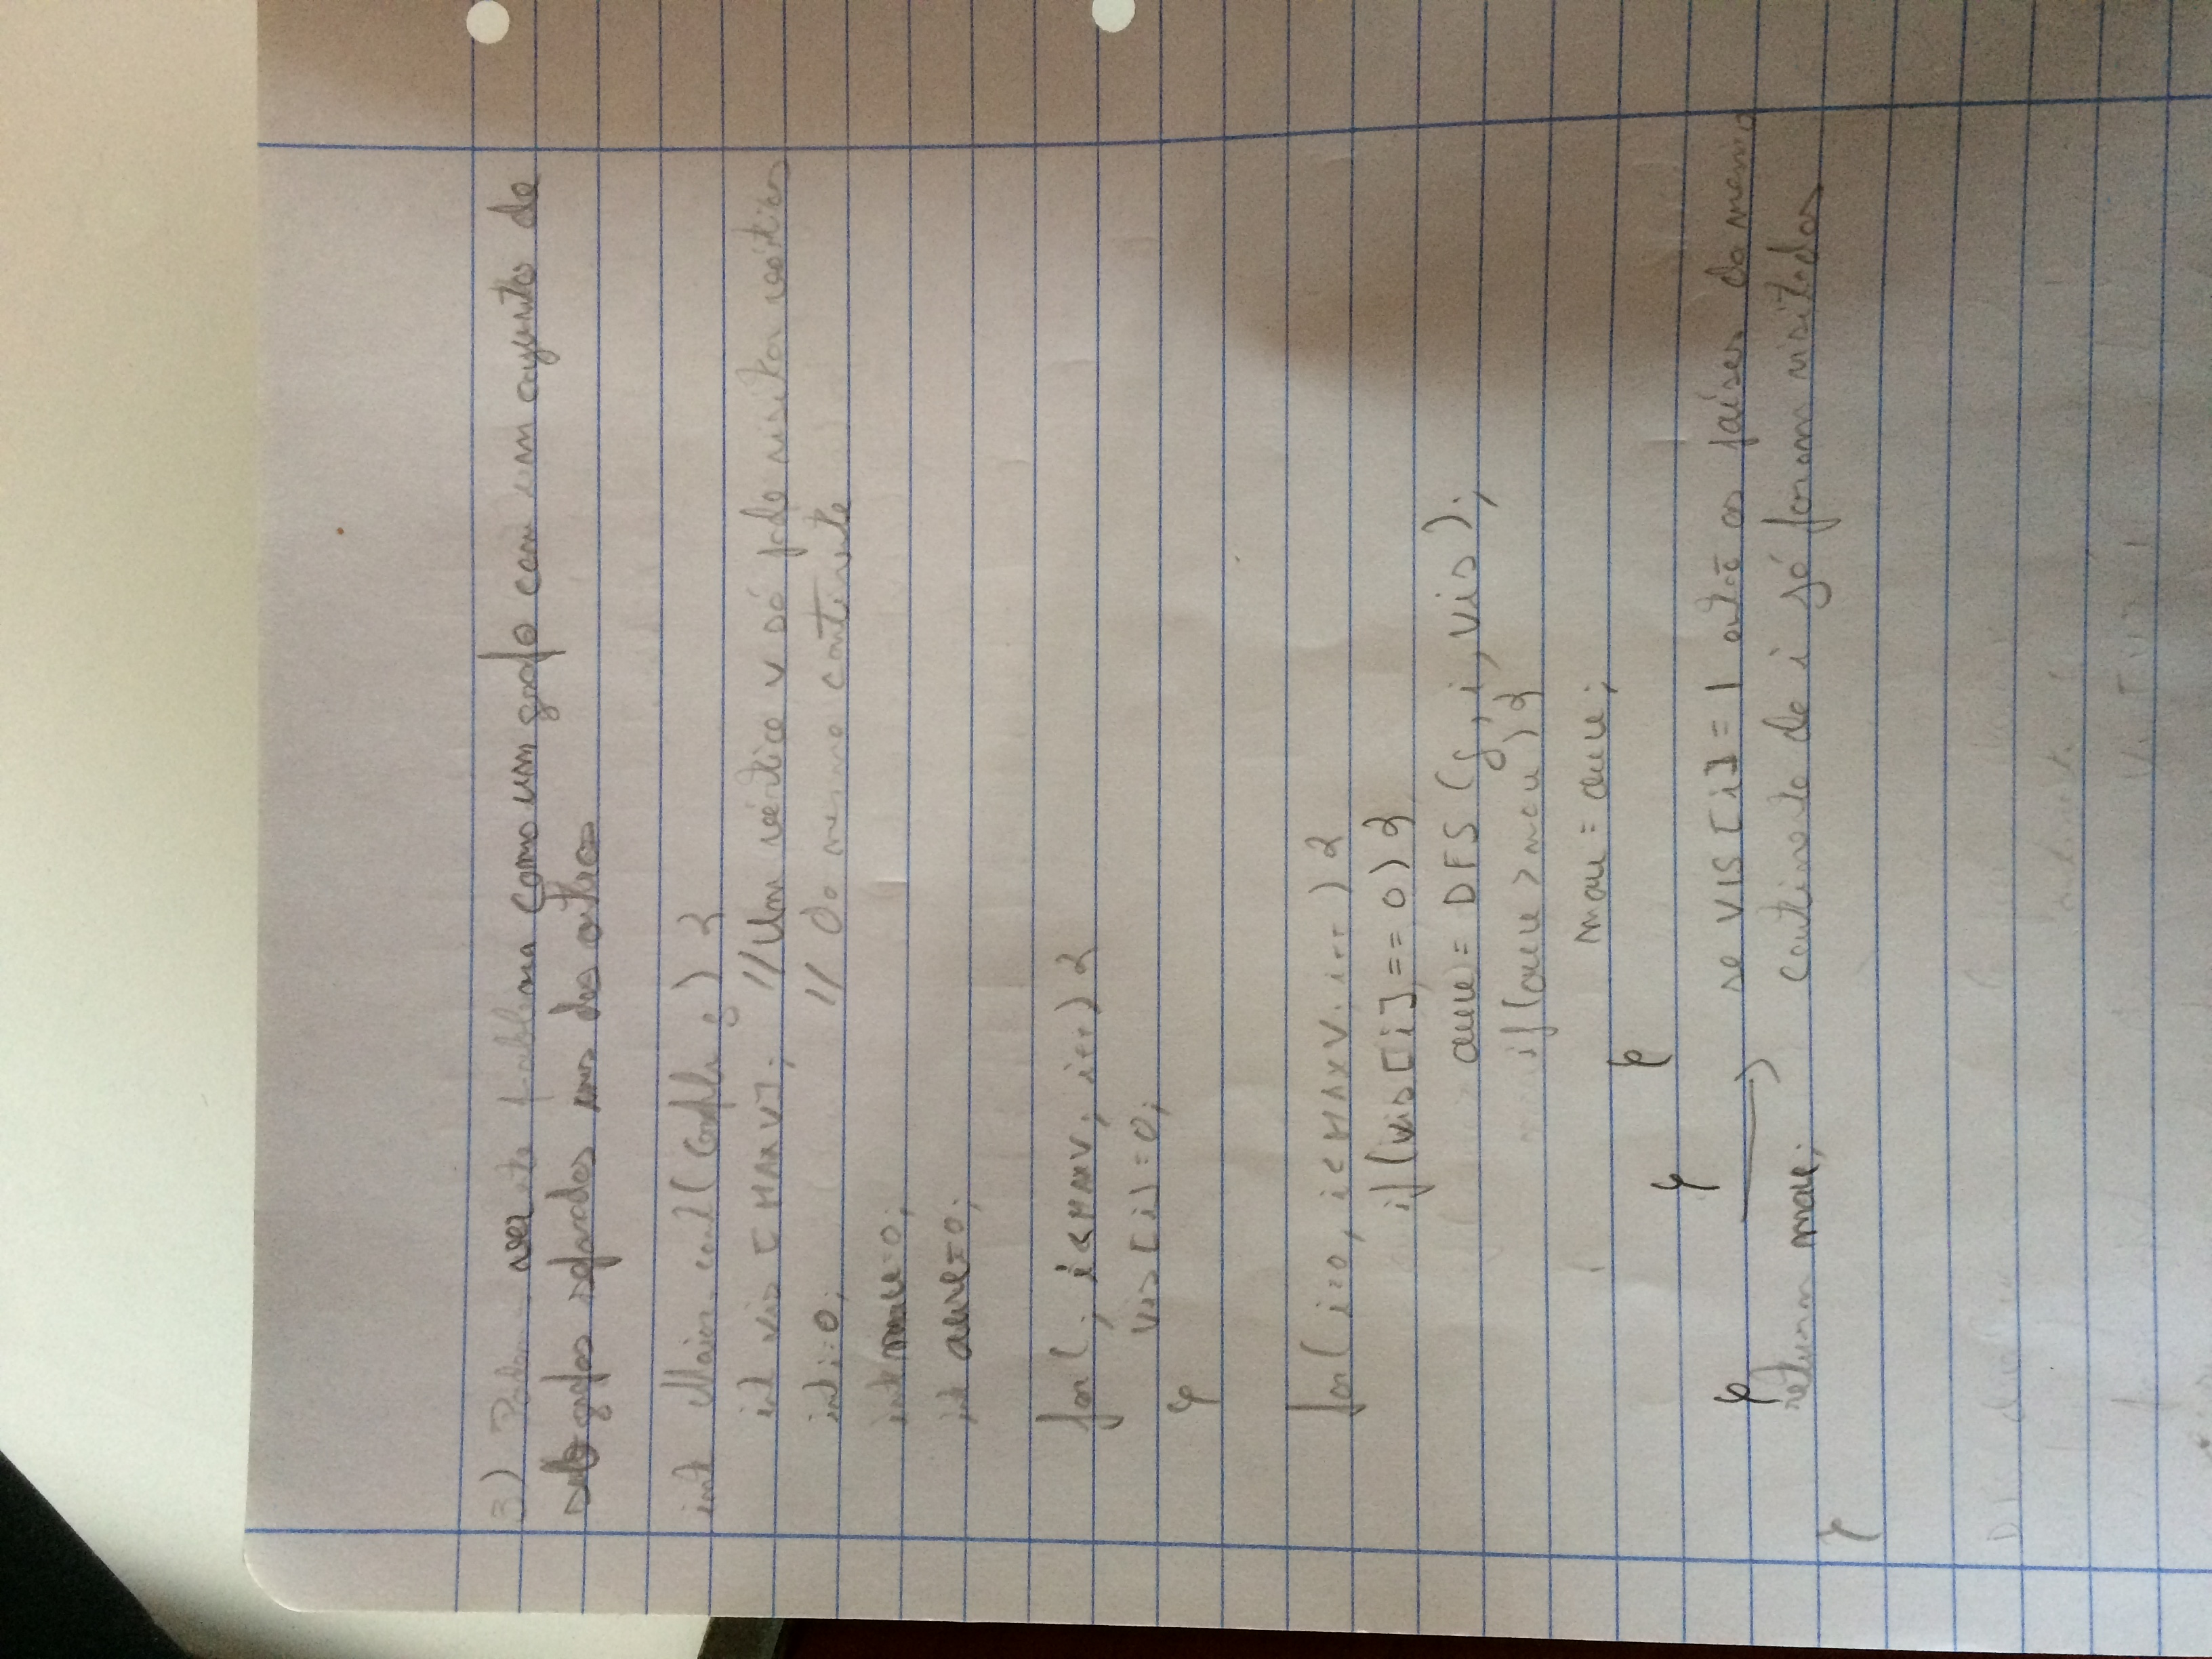 3) Podemos ver este problema como um grafo com um conjunto de
sub grafos separados uns dos outros
int Maior_cont(Graph g) {
int vis [MAXV]; // Um vértice v só pode visitar vértices
int i=0; // Do mesmo continente
int max=0;
int aux=0;
for(; i<MAXV; i++) {
vis[i]=0;
}
for(i=0; i<MAXV; i++) {
if(vis[i]==0) {
aux = DFS (g, i, vis);
if(aux > max) {
max = aux;
}
}
} → se VIS[i]=1 então os países do mesmo
return max; continente de i já foram visitados
}